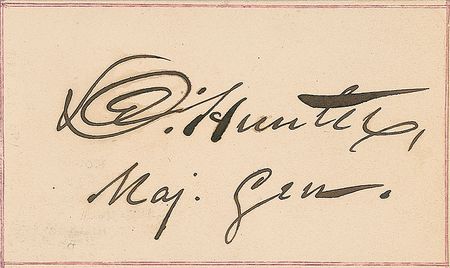 D. Hunter,
Maj. Gen.